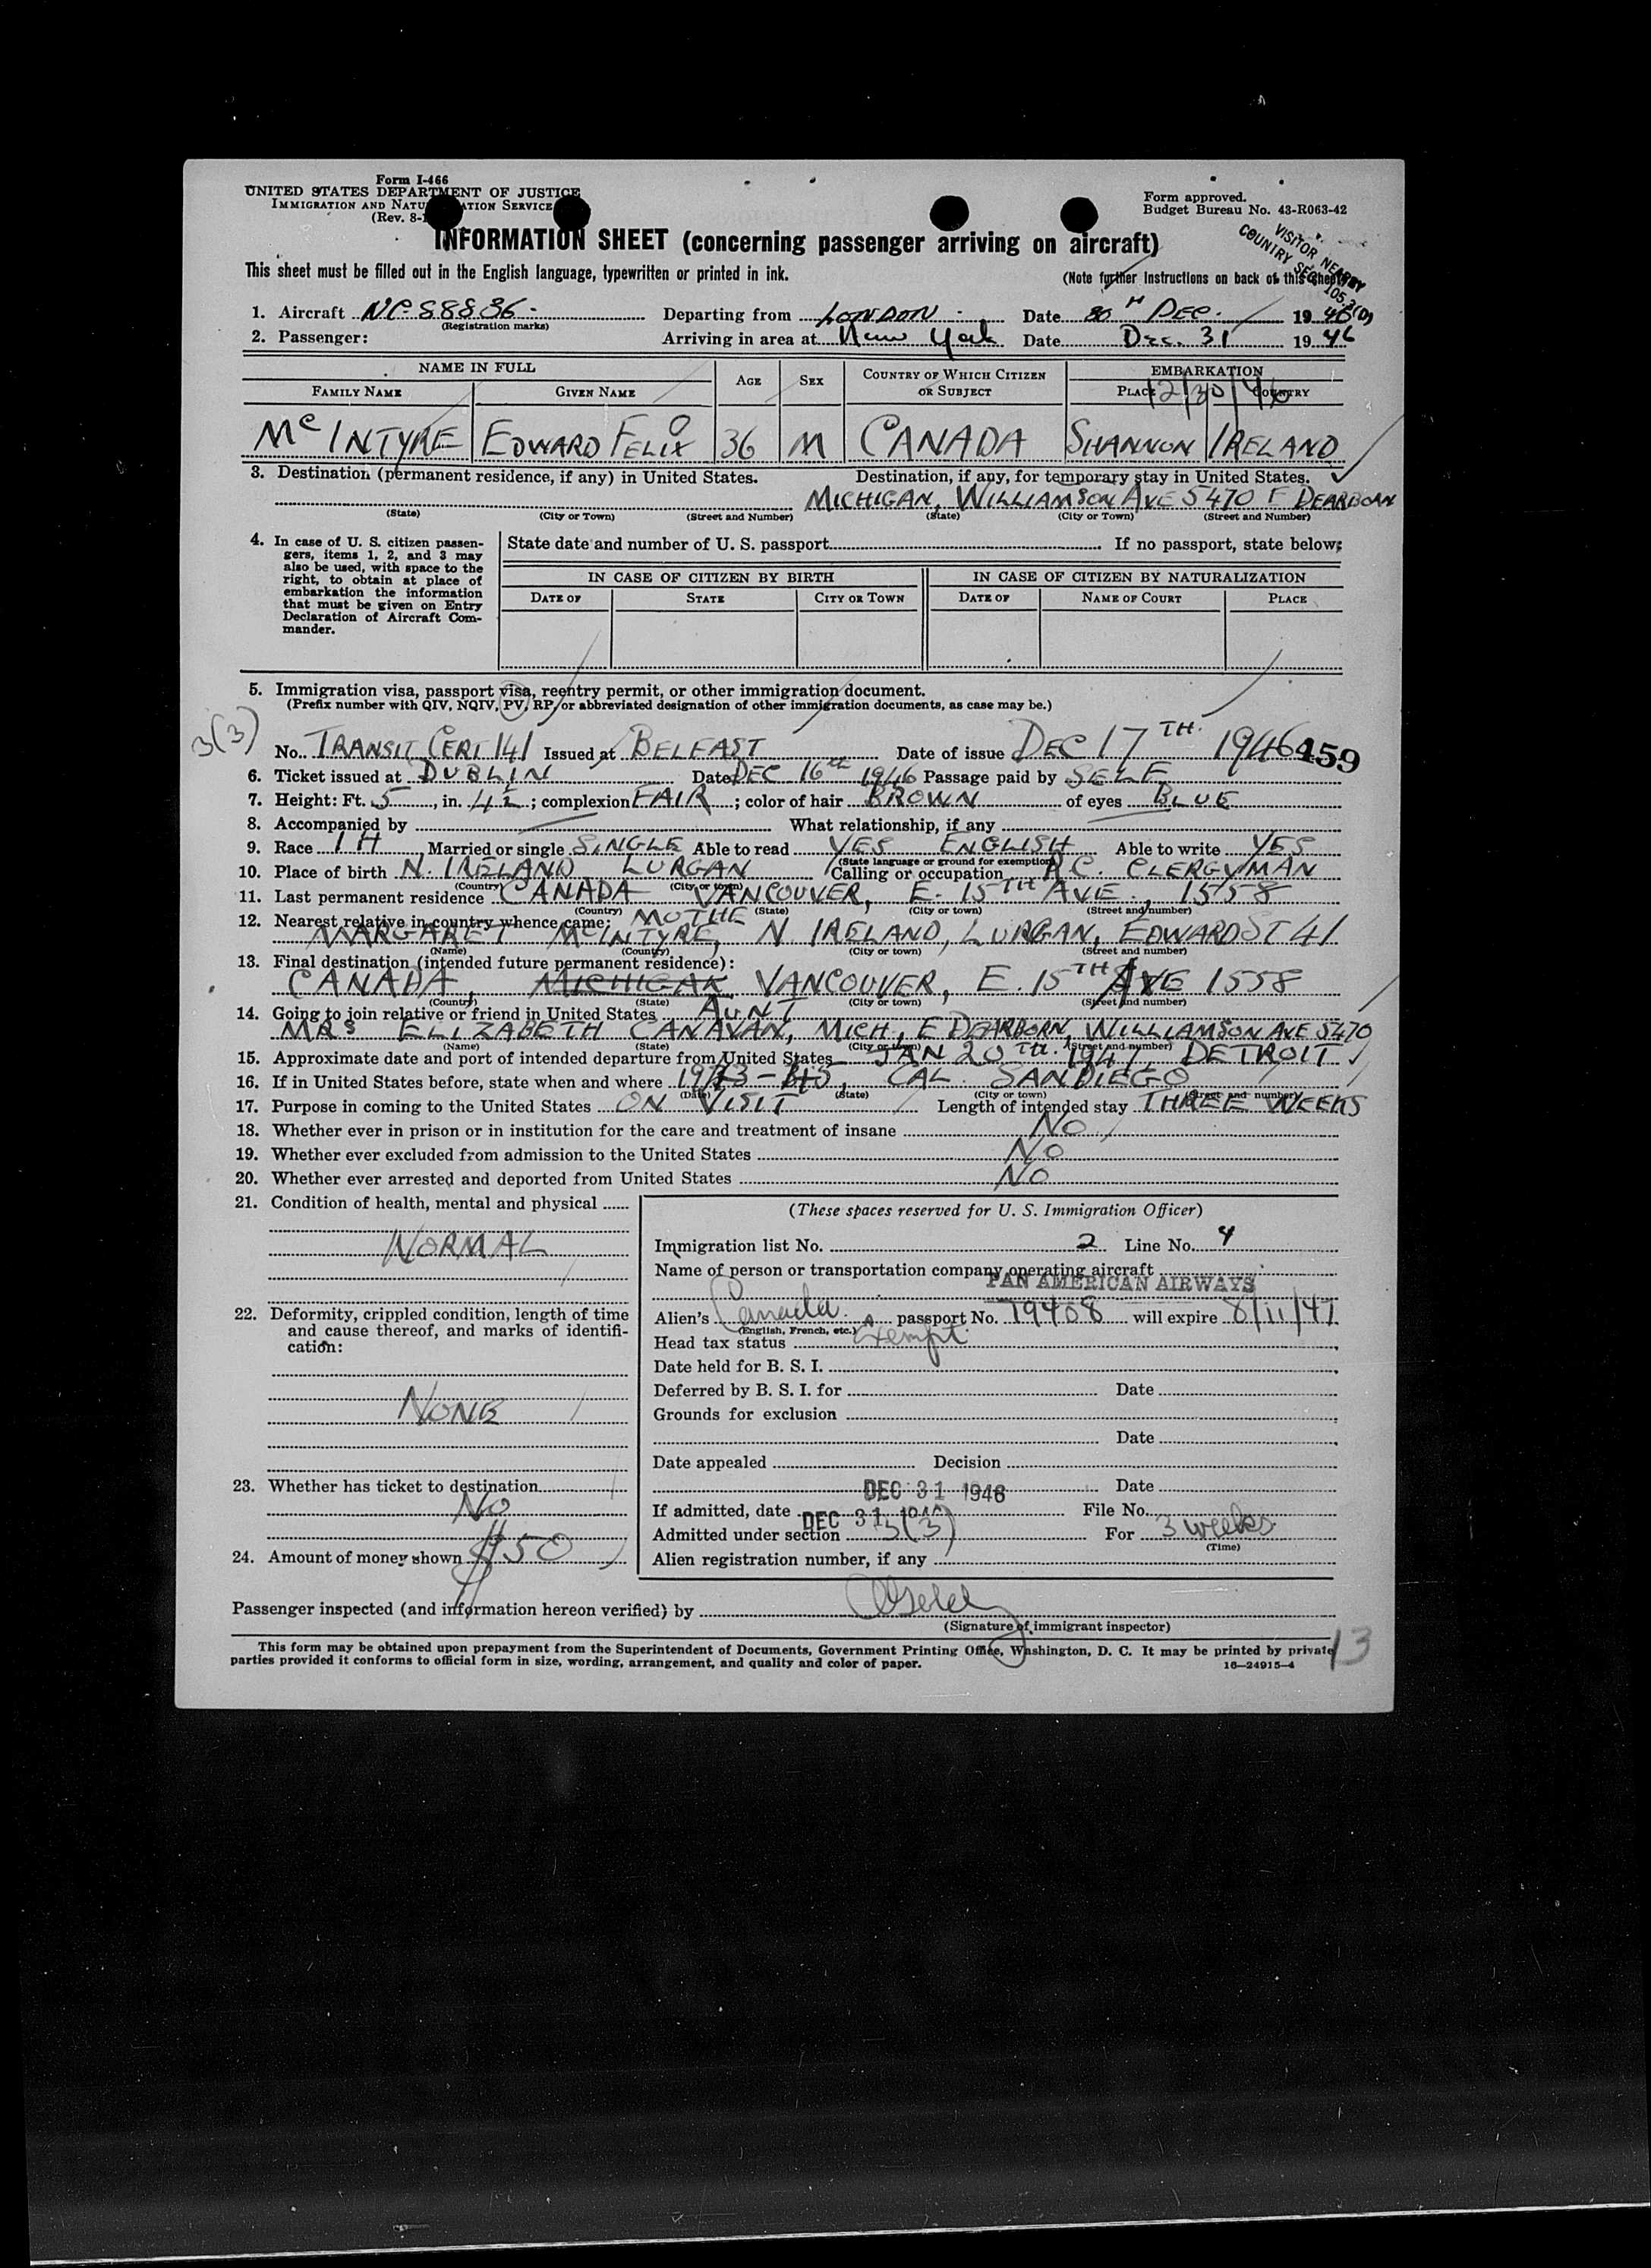 Form I-466
UNITED STATES DEPARTMENT OF JUSTICE
IMMIGRATION AND NATU ATION SERVICE
(Rev. 8-
Form approved.
Budget Bureau No. 43-R063-42
VISITOR NEARBY
COUNTRY SEC. 105.3(D)
INFORMATION SHEET (concerning passenger arriving on aircraft)
This sheet must be filled out in the English language, typewritten or printed in ink. (Note further Instructions on back of this sheet)
1. Aircraft NC-88836- Departing from LONDON - Date 30TH DEC. 1946
(Registration marks)
2. Passenger: Arriving in area at New York Date Dec. 31 1946
NAME IN FULL AGE SEX COUNTRY OF WHICH CITIZEN OR SUBJECT EMBARKATION
FAMILY NAME GIVEN NAME PLACE COUNTRY
12/30/46
McINTYRE EDWARD FELIX 36 M CANADA SHANNON IRELAND
3. Destination (permanent residence, if any) in United States. Destination, if any, for temporary stay in United States.
MICHIGAN, WILLIAMSON AVE 5470 E DEARBORN
(State) (City or Town) (Street and Number) (State) (City or Town) (Street and Number)
4. In case of U. S. citizen passen-
gers, items 1, 2, and 3 may
also be used, with space to the
right, to obtain at place of
embarkation the information
that must be given on Entry
Declaration of Aircraft Com-
mander.
State date and number of U. S. passport If no passport, state below:
IN CASE OF CITIZEN BY BIRTH IN CASE OF CITIZEN BY NATURALIZATION
DATE OF STATE CITY OR TOWN DATE OF NAME OF COURT PLACE
5. Immigration visa, passport visa, reentry permit, or other immigration document.
(Prefix number with QIV, NQIV, PV, RP, or abbreviated designation of other immigration documents, as case may be.)
3(3)
No. TRANSIT CERT 141 Issued at BELFAST Date of issue DEC 17TH. 1946 459
6. Ticket issued at DUBLIN Date DEC 16th 1946 Passage paid by SELF
7. Height: Ft. 5, in. 4½; complexion FAIR; color of hair BROWN of eyes BLUE
8. Accompanied by What relationship, if any
9. Race IH Married or single SINGLE Able to read YES ENGLISH Able to write YES
(State language or ground for exemption)
10. Place of birth N. IRELAND LURGAN Calling or occupation R.C. CLERGYMAN
(Country) (City or town)
11. Last permanent residence CANADA VANCOUVER, E. 15TH AVE., 1558
(Country) (State) (City or town) (Street and number)
12. Nearest relative in country whence came: MOTHE
MARGARET McINTYRE, N. IRELAND, LURGAN, EDWARD ST 41
(Name) (Country) (City or town) (Street and number)
13. Final destination (intended future permanent residence):
CANADA, MICHIGAN VANCOUVER, E. 15TH AVE 1558
(Country) (State) (City or town) (Street and number)
14. Going to join relative or friend in United States AUNT
MRS ELIZABETH CANAVAN, MICH, E DEARBORN, WILLIAMSON AVE 5470
(Name) (State) (City or town) (Street and number)
15. Approximate date and port of intended departure from United States JAN 20TH. 1947 DETROIT
16. If in United States before, state when and where CAL. SAN DIEGO
(Date) (State) (City or town) (Street and number)
17. Purpose in coming to the United States ON VISIT Length of intended stay THREE WEEKS
18. Whether ever in prison or in institution for the care and treatment of insane NO
19. Whether ever excluded from admission to the United States NO
20. Whether ever arrested and deported from United States NO
21. Condition of health, mental and physical
NORMAL
22. Deformity, crippled condition, length of time
and cause thereof, and marks of identifi-
cation:
NONE
23. Whether has ticket to destination
No
24. Amount of money shown $50
(These spaces reserved for U. S. Immigration Officer)
Immigration list No. 2 Line No. 4
Name of person or transportation company operating aircraft
PAN AMERICAN AIRWAYS
Alien's Canada passport No. 79408 will expire 8/11/47
(English, French, etc.)
Head tax status Exempt
Date held for B. S. I.
Deferred by B. S. I. for Date
Grounds for exclusion
Date
Date appealed Decision
DEC 31 1946 Date
If admitted, date DEC 31 1946 File No.
Admitted under section 3(3) For 3 weeks
(Time)
Alien registration number, if any
Passenger inspected (and information hereon verified) by
(Signature of immigrant inspector)
This form may be obtained upon prepayment from the Superintendent of Documents, Government Printing Office, Washington, D. C. It may be printed by private
parties provided it conforms to official form in size, wording, arrangement, and quality and color of paper. 16—24915-4
13